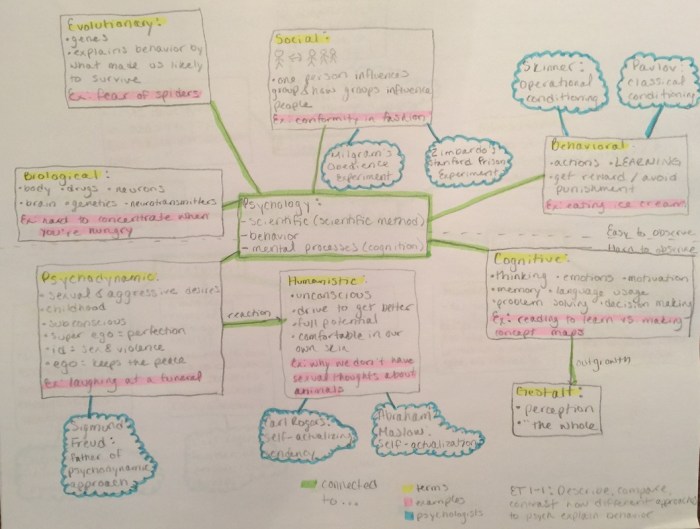 Evolutionary:
• genes
• explains behavior by
what made us likely
to survive
Ex: fear of spiders
Social:
• one person influences
group & how groups influence
people
Ex: conformity in fashion
Milgram's
Obedience
Experiment
Zimbardo:
Stanford Prison
Experiment
Skinner:
Operational
conditioning
Pavlov:
classical
conditioning
Behavioral
• actions • LEARNING
• get reward / avoid
punishment
Ex: eating ice cream
Biological:
• body • drugs • neurons
• brain • genetics • neurotransmitters
Ex: hard to concentrate when
you're hungry
Psychology:
- scientific (scientific method)
- behavior
- mental processes (cognition)
Easy to observe
Hard to observe
Psychodynamic:
• sexual & aggressive desires
• childhood
• subconscious
• super ego = perfection
• id = sex & violence
• ego: keeps the peace
Ex: laughing at a funeral
reaction
Humanistic:
• unconscious
• drive to get better
• full potential
• comfortable in our
own skin
Ex: why we don't have
sexual thoughts about
animals
Cognitive:
• thinking • emotions • motivation
• memory • language usage
• problem solving • decision making
Ex: reading to learn vs making
concept maps
outgrowth
Gestalt:
• perception
• "the whole"
Sigmund
Freud:
Father of
psychodynamic
approach
Carl Rogers:
self-actualizing
tendency
Abraham
Maslow:
Self-actualization
connected
to...
terms
examples
psychologists
ET 1-1: Describe, compare,
contrast how different approaches
to psych explain behavior